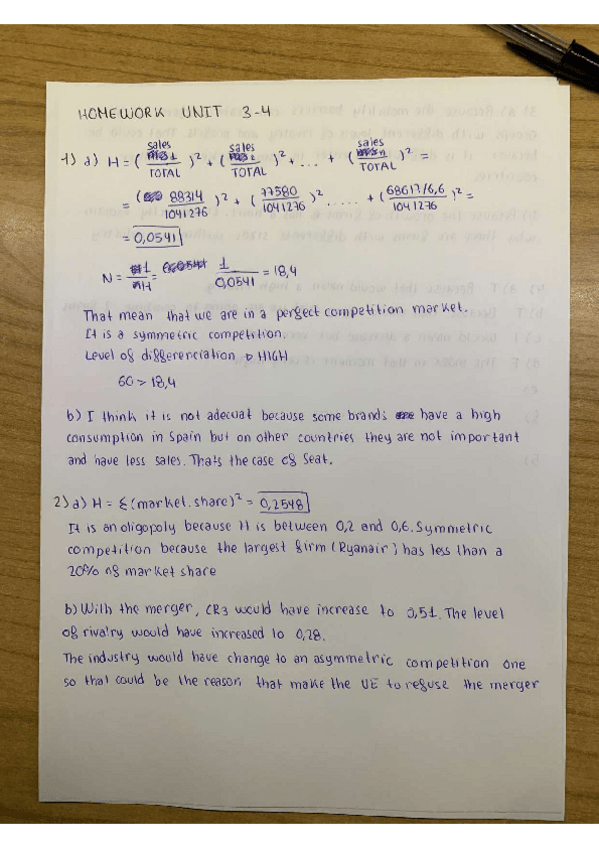 HOMEWORK UNIT 3-4
1) a) H = ( sales 1 / TOTAL )² + ( sales 2 / TOTAL )² + ... + ( sales n / TOTAL )² =
= ( 88314 / 1041276 )² + ( 77580 / 1041276 )² ..... + ( 68617/6,6 / 1041276 )² =
= 0,0541
N = 1 / H = 1 / 0,0541 = 18,4
That mean that we are in a perfect competition market.
It is a symmetric competition.
Level of differenciation → HIGH
60 > 18,4
b) I think it is not adecuat because some brands have a high
consumption in Spain but on other countries they are not important
and have less sales. Thats the case of Seat.
2) a) H = Σ (market.share)² = 0,2548
It is an oligopoly because H is between 0,2 and 0,6. Symmetric
competition because the largest firm (Ryanair) has less than a
20% of market share
b) With the merger, CR3 would have increase to 0,51. The level
of rivalry would have increased to 0,28.
The industry would have change to an asymmetric competition one
so that could be the reason that make the UE to refuse the merger